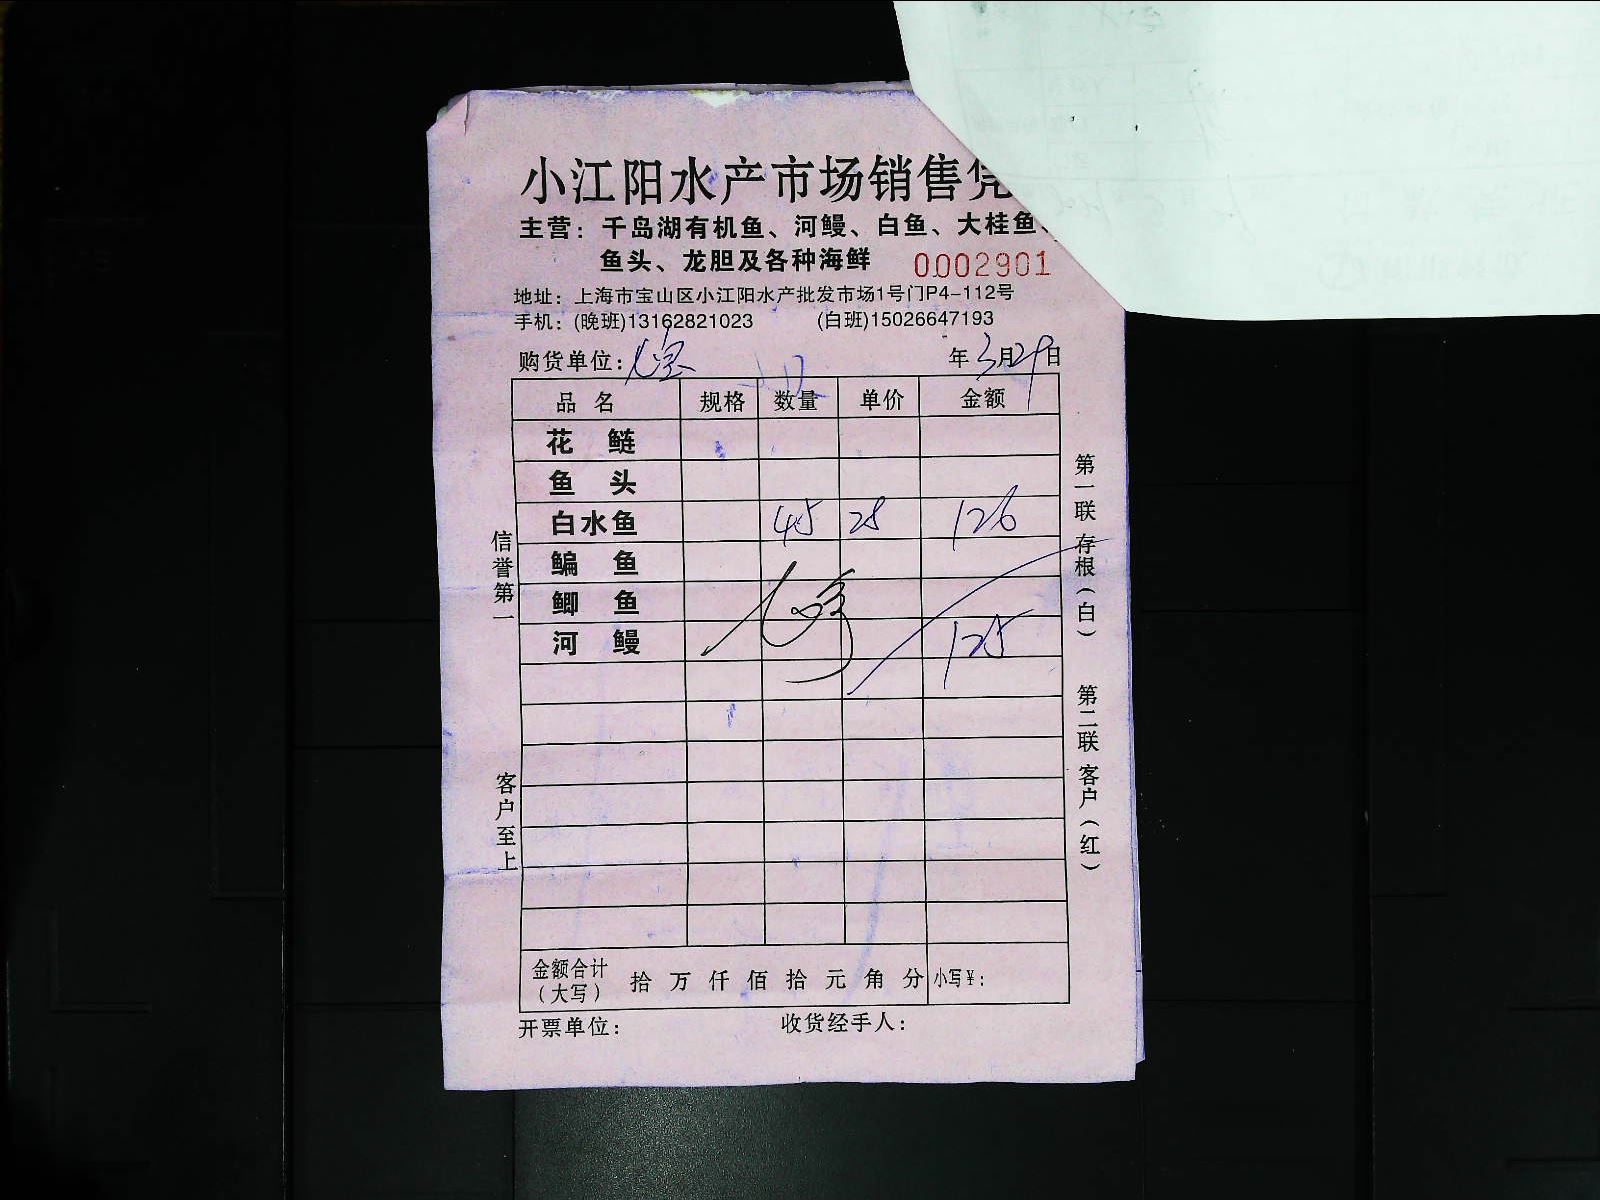 小江阳水产市场销售凭
主营：千岛湖有机鱼、河鳗、白鱼、大桂鱼、
鱼头、龙胆及各种海鲜 0002901
地址：上海市宝山区小江阳水产批发市场1号门P4-112号
手机：(晚班)13162821023 (白班)15026647193
购货单位： 年3月29日
品名 规格 数量 单价 金额
花鲢
鱼头
白水鱼 45 28 126
鳊鱼
鲫鱼
河鳗 125
金额合计（大写） 拾万仟佰拾元角分 小写￥：
开票单位： 收货经手人：
信誉第一
客户至上
第一联存根（白）
第二联客户（红）